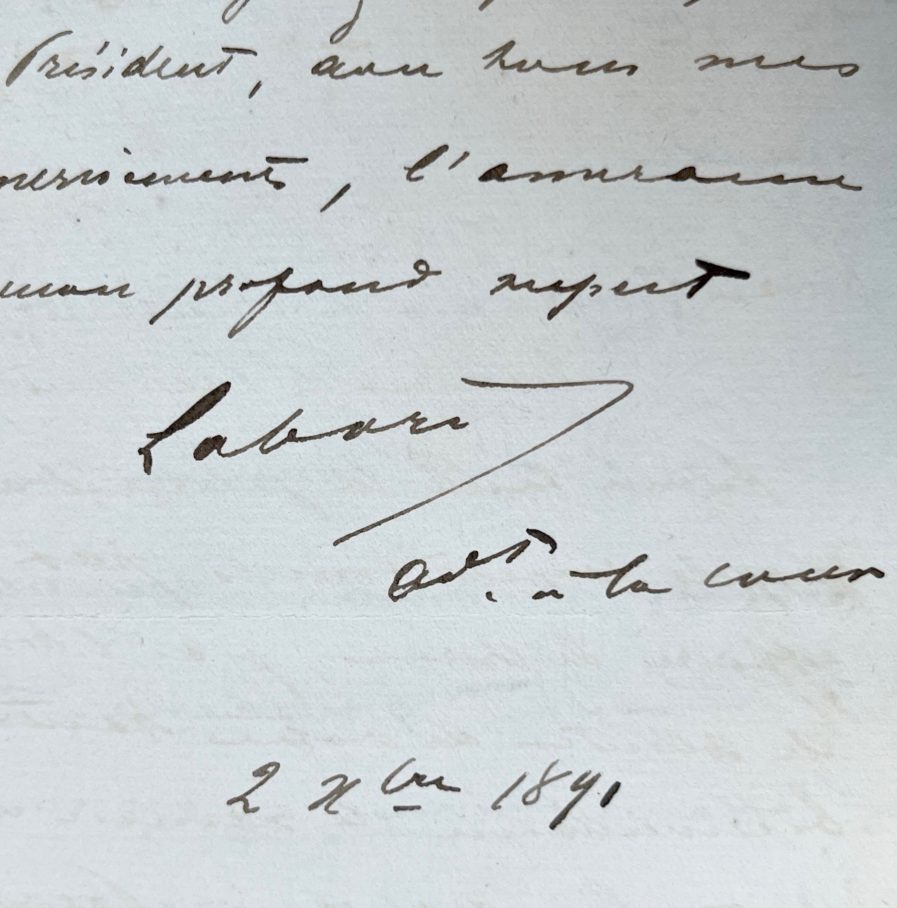 Président, avec tous mes
merciements, l'assurance
mon profond respect
Labori
avt. à la cour
2 Xbre 1891